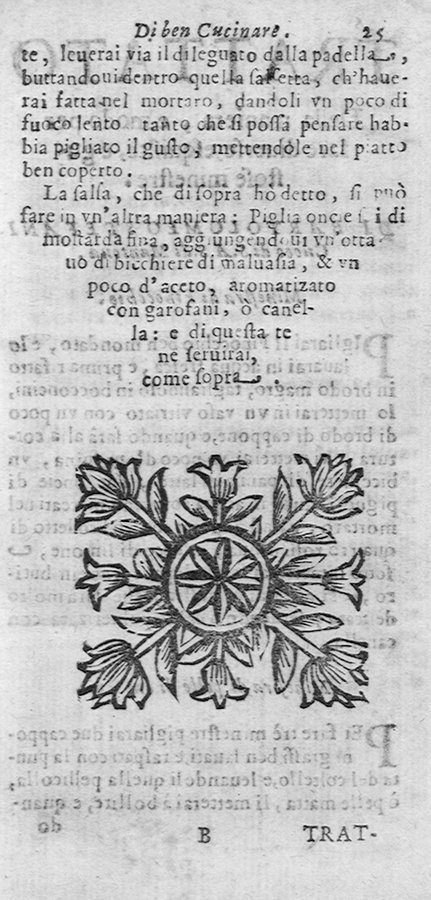 Di ben Cucinare. 25
te, leuerai via il dileguato dalla padella,
buttandoui dentro quella salsetta, ch'haue-
rai fatta nel mortaro, dandoli vn poco di
fuoco lento tanto che si possa pensare hab-
bia pigliato il gusto, mettendole nel piatto
ben coperto.
La salsa, che di sopra hò detto, si può
fare in vn'altra maniera: Piglia oncie i, i di
mostarda fina, aggiungendoui vn'otta
uo di bicchiere di maluasia, & vn
poco d'aceto, aromatizato
con garofani, ò canel-
la: e di questa te
ne seruirai,
come sopra.
B TRAT-